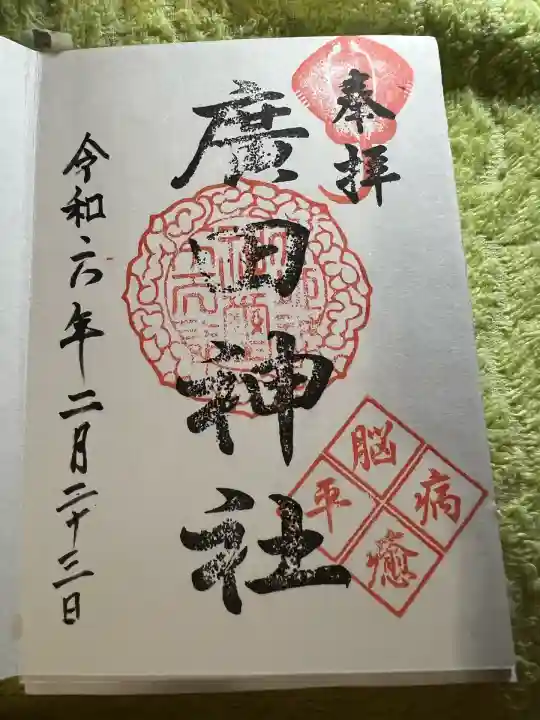 奉拝
廣田神社
令和六年二月二十三日
病癒
脳平